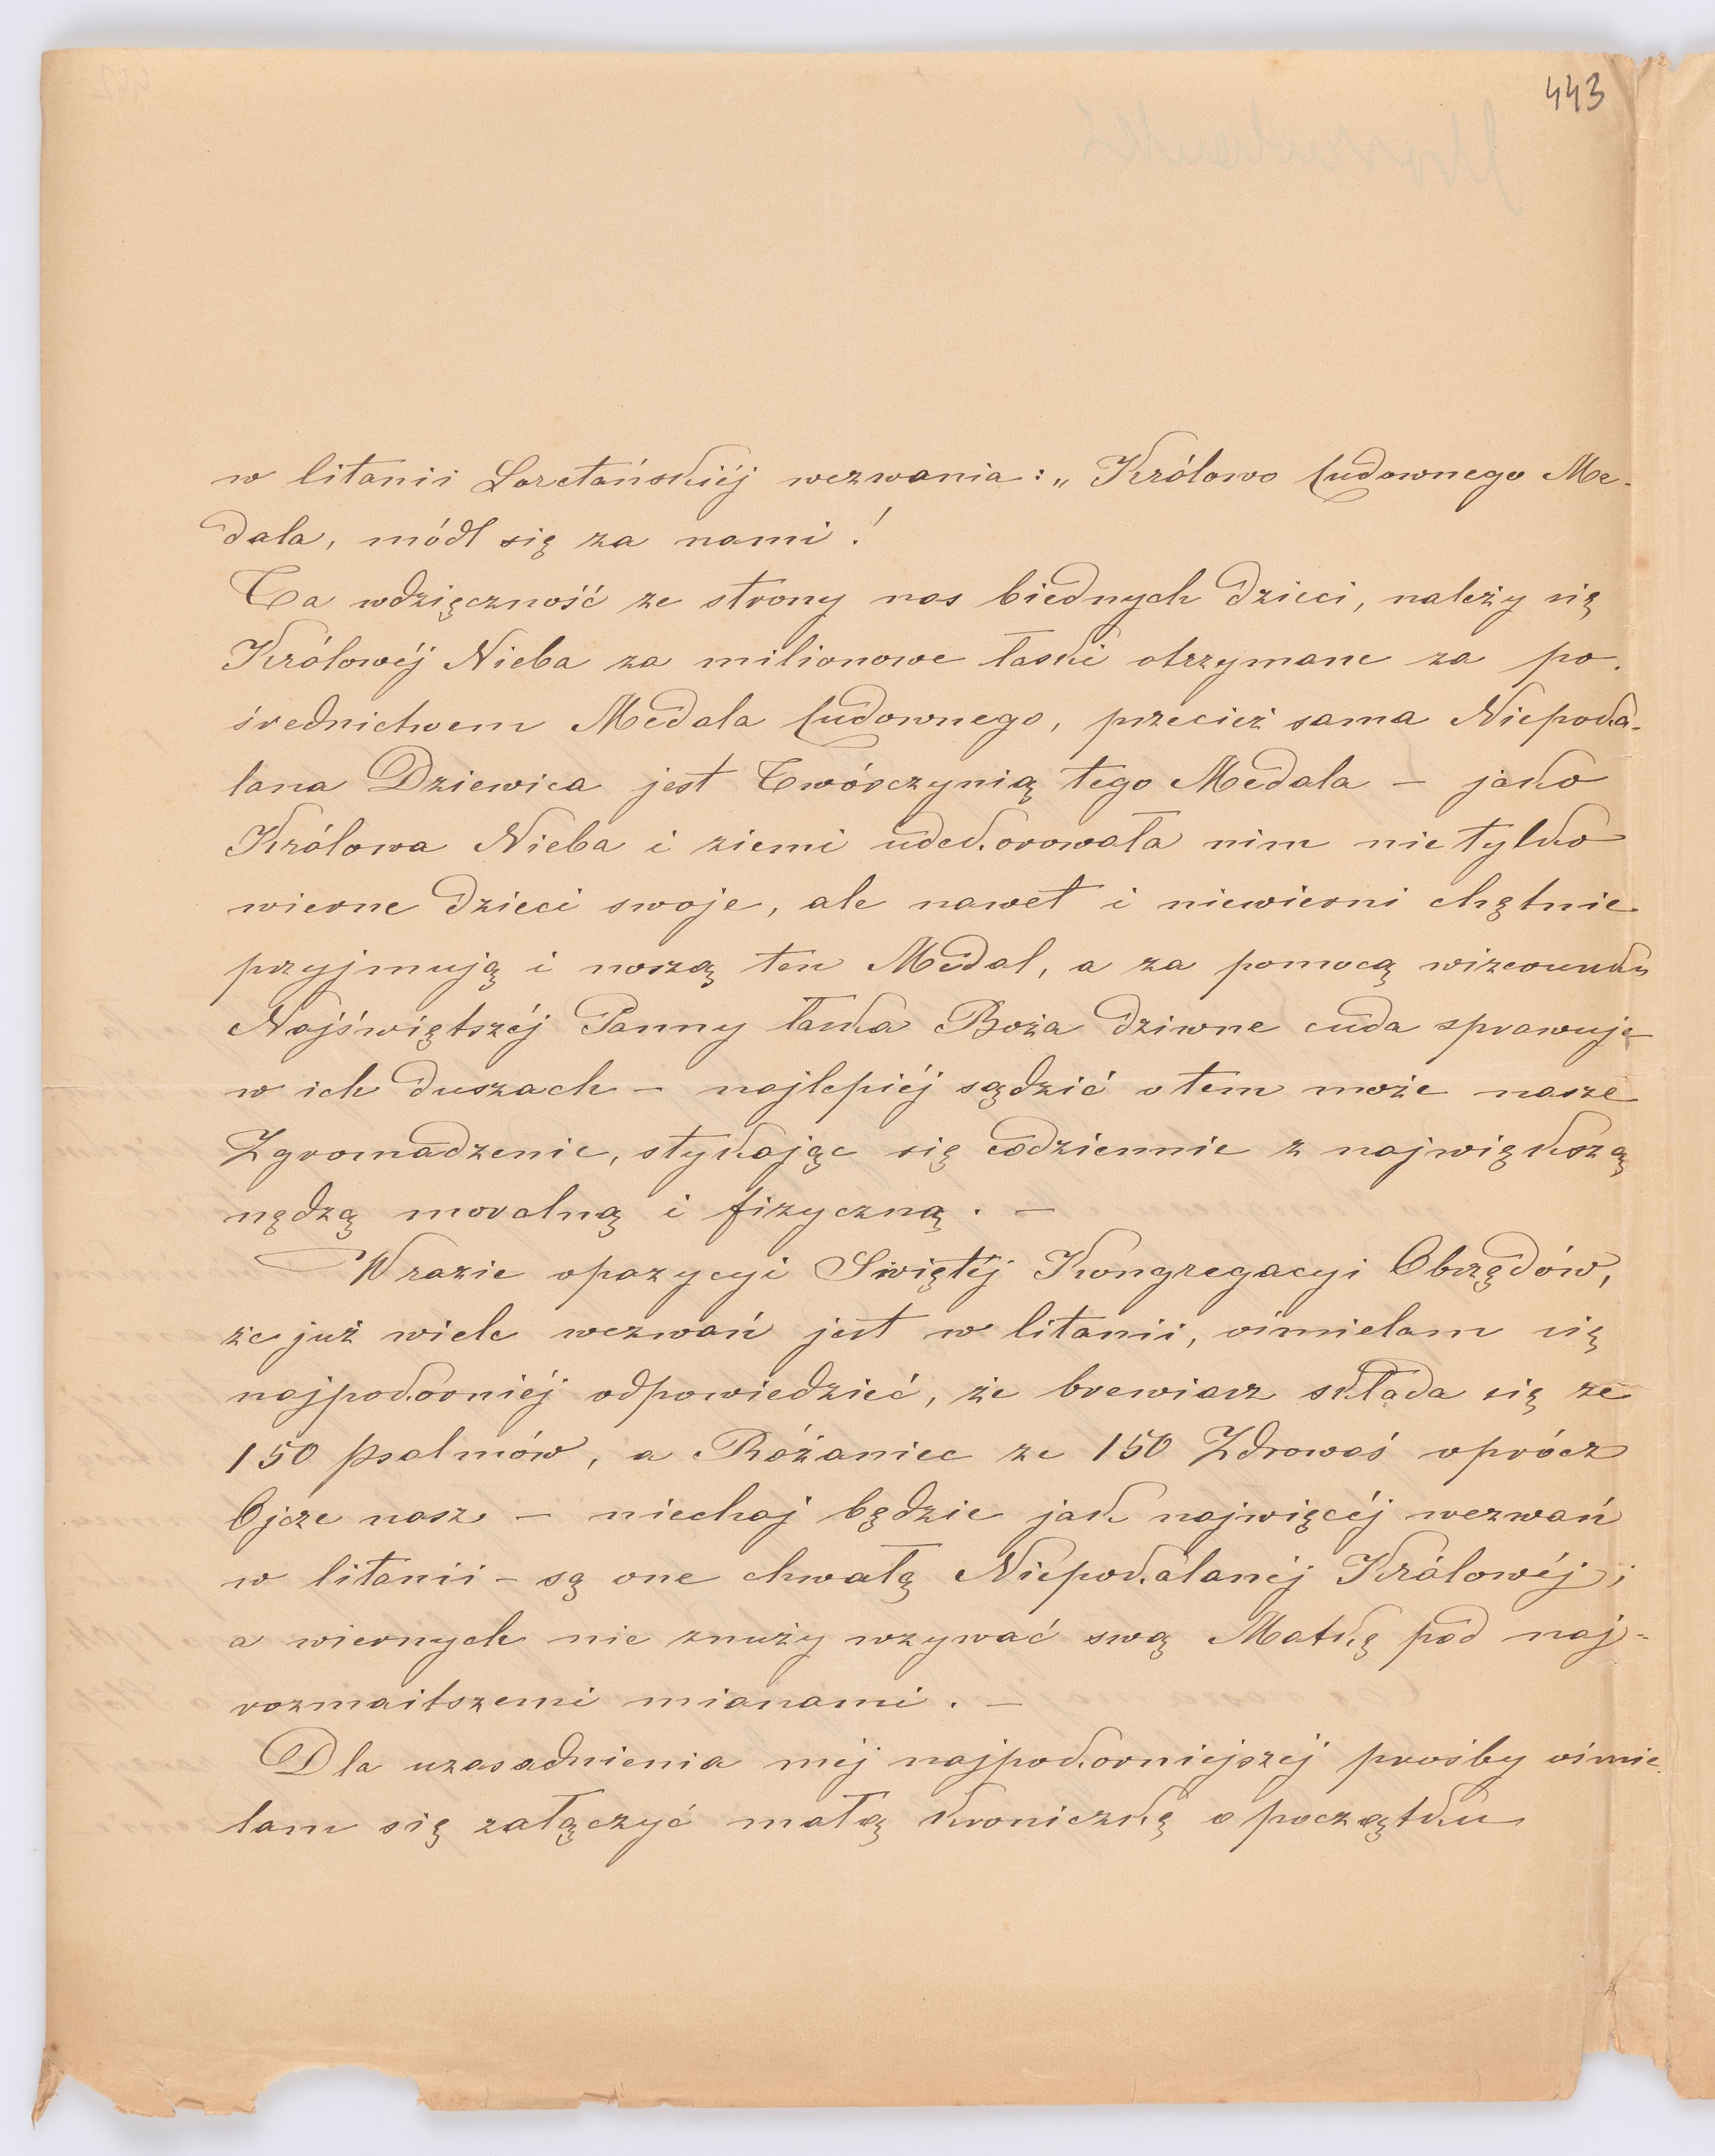 443
w litanii Loretańskiéj wezwania: „Królowo Cudownego Me-
dala, módl się za nami!
Ta wdzięczność ze strony nas biednych dzieci, należy się
Królowéj Nieba za milionowe łaski otrzymane za po-
średnictwem Medala Cudownego, przecież sama Niepoka-
lana Dziewica jest Twórczynią tego Medala – jako
Królowa Nieba i ziemi udekorowała nim nie tylko
wierne dzieci swoje, ale nawet i niewierni chętnie
przyjmują i noszą ten Medal, a za pomocą wizerunku
Najświętszéj Panny łaska Boża dziwne cuda sprawuje
w ich duszach – najlepiéj sądzić o tem może nasze
Zgromadzenie, stykając się codziennie z największą
nędzą moralną i fizyczną. –
W razie opozycyi Swiętéj Kongregacyi Obrzędów,
że już wiele wezwań jest w litanii, ośmielam się
najpokorniéj odpowiedzieć, że brewiarz składa się ze
150 psalmów, a Różaniec ze 150 Zdrowaś oprócz
Ojcze nasz – niechaj będzie jak najwięcéj wezwań
w litanii – są one chwałą Niepokalanéj Królowéj;
a wiernych nie znuży wzywać swą Matkę pod naj-
rozmaitszemi mianami. –
Dla uzasadnienia méj najpokorniejszéj prośby ośmie-
lam się załączyć małą kroniczkę o początku